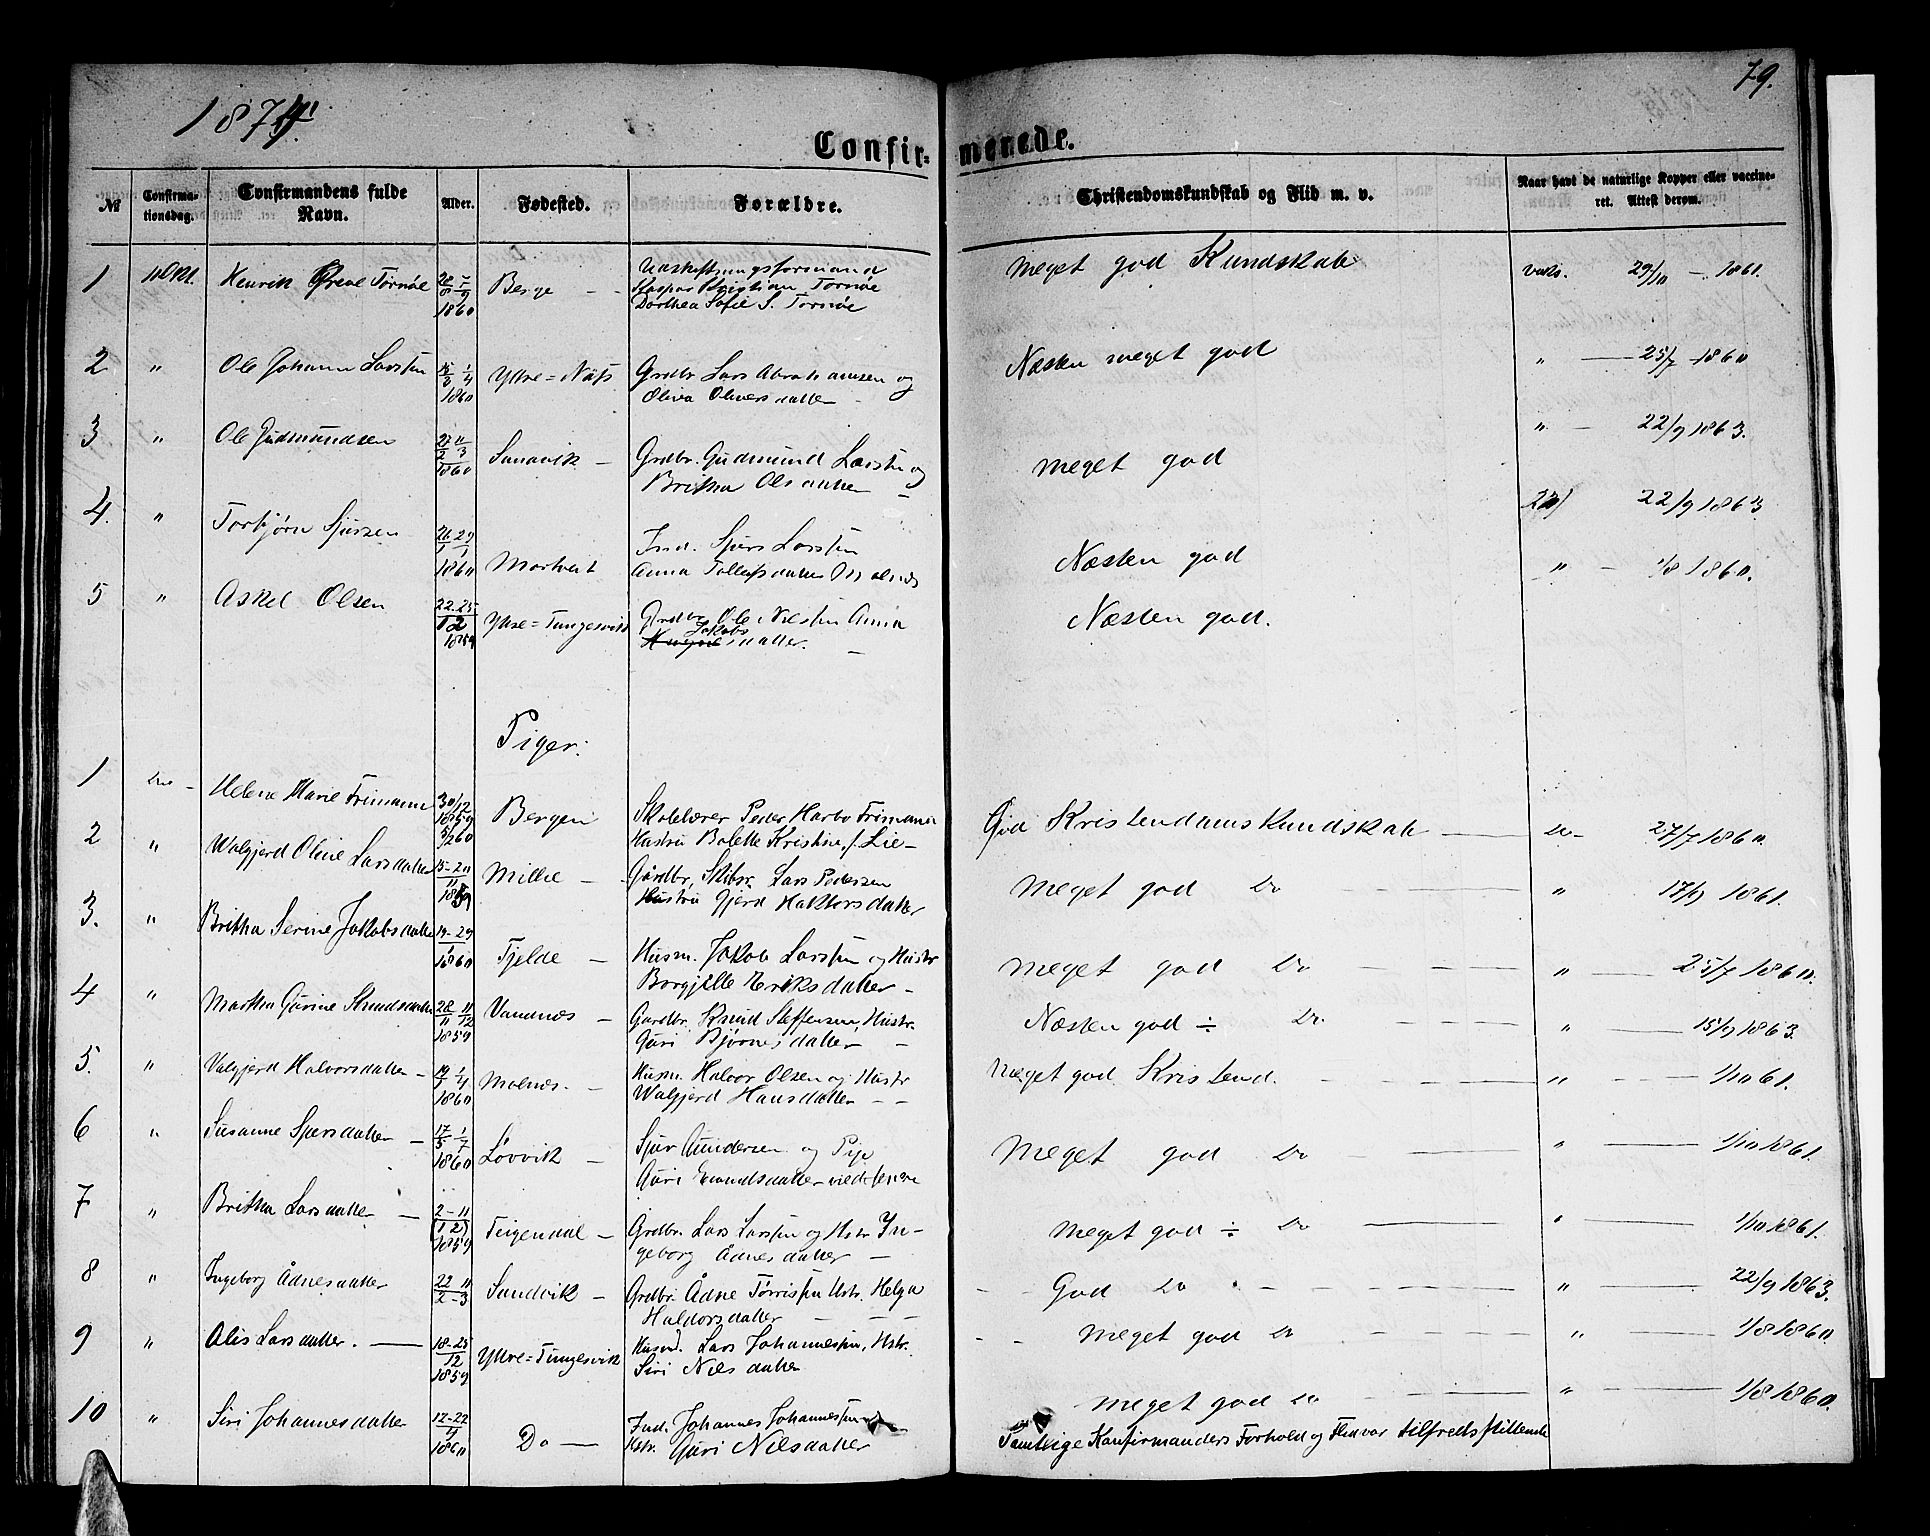 79.
1874
Confirmerede.
№ Confirmationsdag. Confirmandens fulde Navn. Alder. Fødested. Forældre. Christendomskundskab og Flid m. v. Naar havt de naturlige Kopper eller vaccineret. Attest derom.
1 11 Okt. Henrik Greve Tornøe 1860 Berge — Udskiftningsformand meget god Kundskab vaks. 29/10 — 1861.
Kaspar Kristian Tornøe
Dorthea Sofie S. Tornøe
2 " Ole Johann Larsen 15/3 1/4 1860 Yttre=Näss Grdbr. Lars Abrahamsen og Næsten meget god " — 25/7 1860
Oliva Oliversdatter
3 " Ole Gudmundsen 1860 Sandvik — Grdbr. Gudmund Larsen og meget god " — 22/9 1863.
Britha Olsdatter —
4. " Torbjørn Sjursen 26/1 29/1 1860 Mortveit Ind. Sjurs Larsen Næsten god 22/9 1863
Anna Tollefsdatter Molnes
5 " Askel Olsen 22-25/12 1859 Yttre=Tungesvik Grdbr. Ole Nilsen Anna Næsten god. " — 1/8 1860.
Jakobsdatter. —
Piger.
1 Do — Helene Marie Frimann 30/12 1859 5/2 60 Bergen Skolelærer Peder Harbo Frimann God Kristendomskundskab — Do — 27/7 1860.
Hustru Bolette Kristine f. Lie —
2 " Walgjerd Oline Larsdatter 15-20/11 1859 Millie — Gårdbr. Skibsr. Lars Pedersen Meget god Do " 17/9 1861.
Hustru Gjerd Haktorsdatter
3. " Britha Serine Jakobsdatter 19-29/1 1860 Tjelde — Husm. Jakob Larsen og Hustr meget god Do " — 25/7 1860.
Borgjille Eriksdatter —
4 " Martha Gurine Knudsdatter 28/11 11/12 1859 Vandnæs — Gardbr. Knud Steffensen, Hustr. Næsten god ÷ Do. " — 15/9 1863.
Guri Bjørnesdatter —
5. " Valgjerd Halvorsdatter — 1/4 1860 Molnæs. — Husm. Halvor Olsen og Hustr meget god Kristend. " — 1/10 61.
Walgjerd Hansdatter — —
6 " Susanne Sjursdatter — 17/5 1/7 1860 Løvvik — Sjur Aundersen og Pige Meget god Do " — 1/10 1861.
Guri
7 " Britha Larsdatter — 2-11 (12) 1859 Teigendal — Grdbr. Lars Larsen og Hstr In- meget god ÷ Do — " — 1/10 1861.
geborg Ådnesdatter —
8 " Ingeborg Ådnesdatter 22/2 11-3 Sandvik — Grdbr. Ådne Tørrisen Hstr. Helga God Do " — 22/9 1863.
Haldorsdatter — — —
9 " Alis Larsdatter. — 18-25/12 1859 Yttre=Tungesvik Husmd. Lars Johannesen, Hstr. meget god Do " — 1/8 1860
Siri Nilsdatter
10 " Siri Johannesdatter 12-22/4 1860 Do — Ind. Johannes Johannesen meget god Do " — 1/8 1860.
Hstr. Guri Nilsdatter
Samtlige Konfirmanders Forhold og Flid var tilfredsstillende